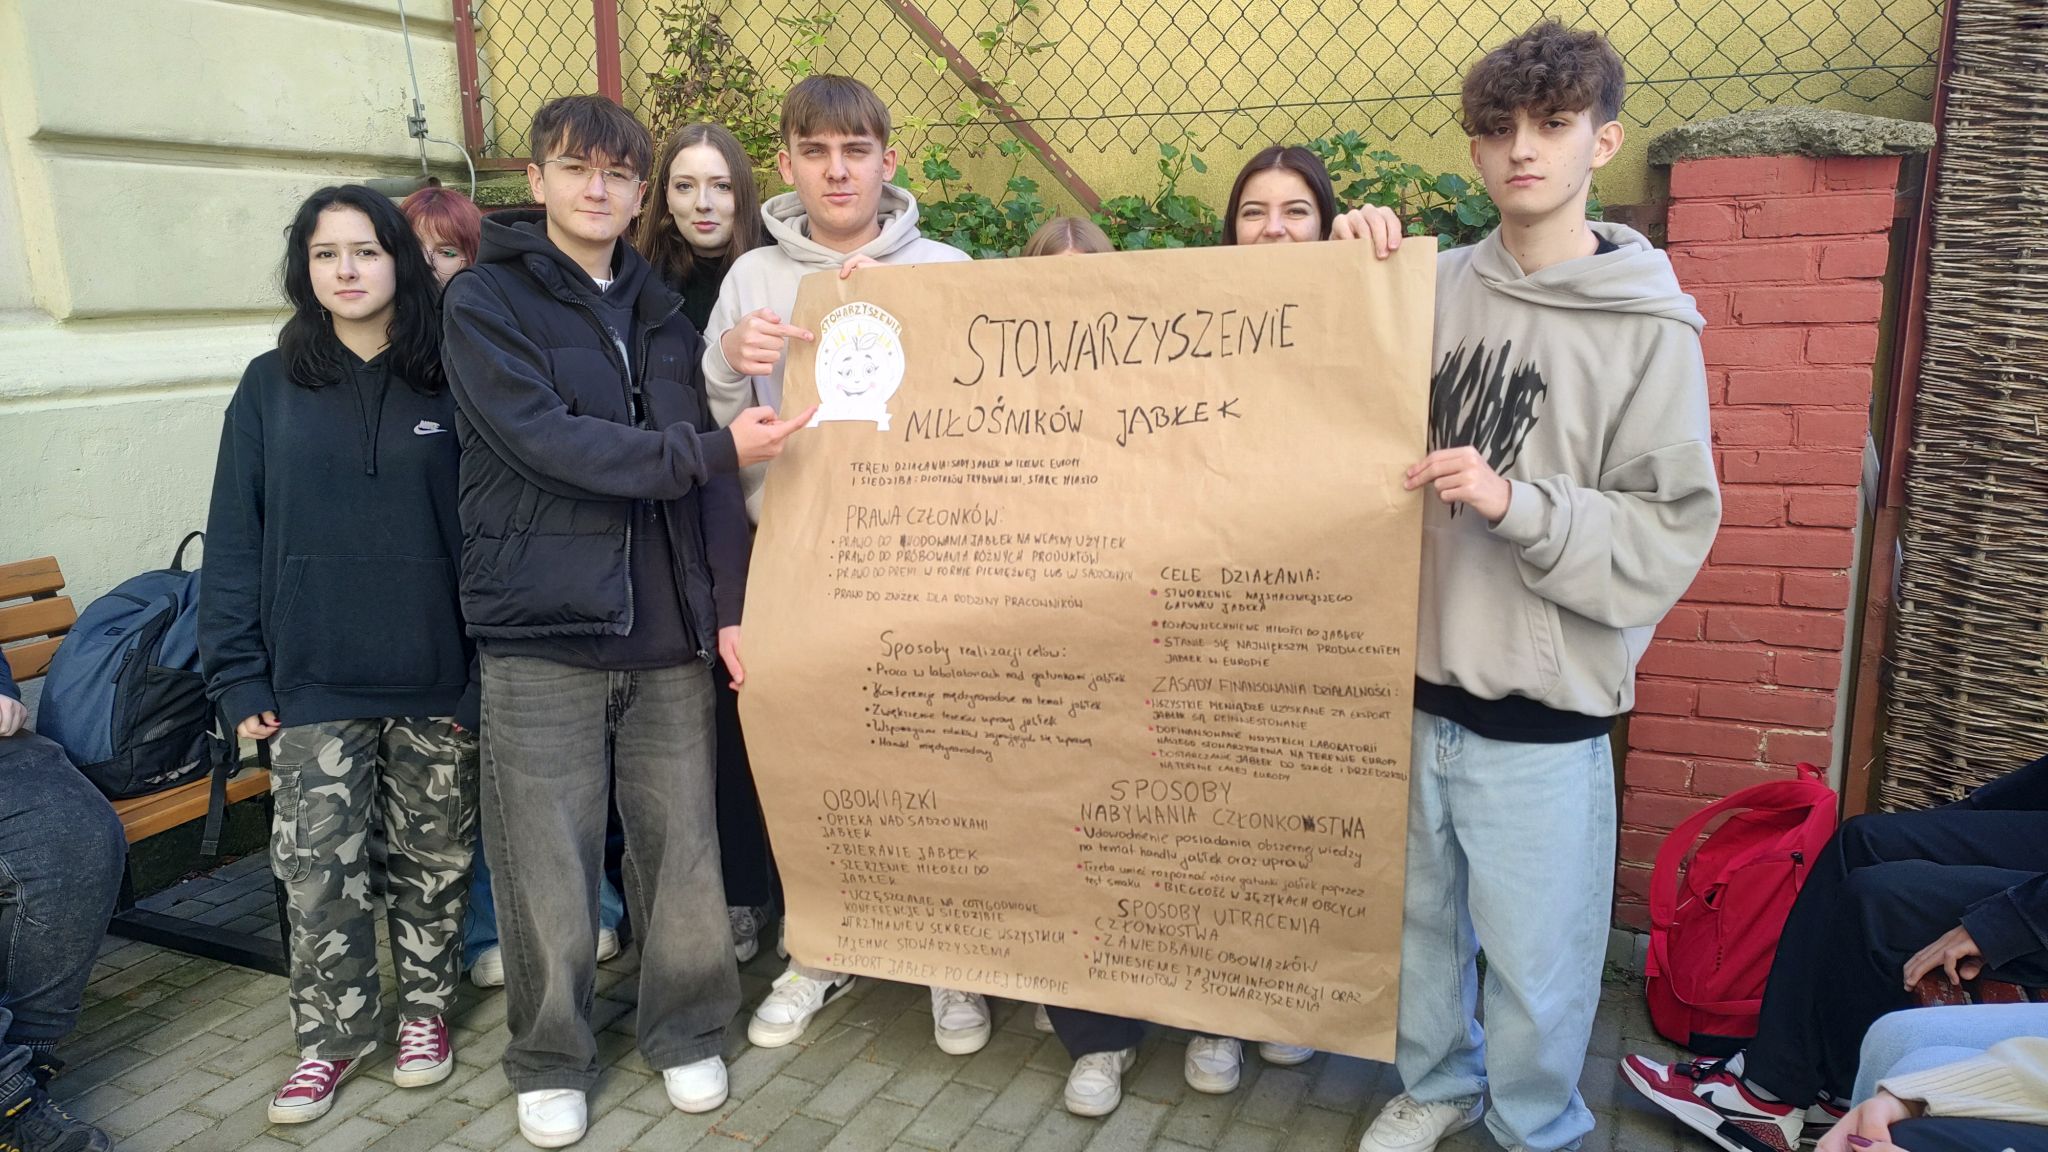 STOWARZYSZENIE
STOWARZYSZENIE
MIŁOŚNIKÓW JABŁEK
TEREN DZIAŁANIA: SADY JABŁEK NA TERENIE EUROPY
I SIEDZIBA: PIOTRKÓW TRYBUNALSKI, STARE MIASTO
PRAWA CZŁONKÓW:
• PRAWO DO HODOWANIA JABŁEK NA WŁASNY UŻYTEK
• PRAWO DO PRÓBOWANIA RÓŻNYCH PRODUKTÓW
• PRAWO DO PREMI W FORMIE PIENIĘŻNEJ LUB W SADZONKACH
• PRAWO DO ZNIŻEK DLA RODZINY PRACOWNIKÓW
Sposoby realizacji celów:
• Praca w labolatoriach nad gatunkami jabłek
• Konferencje międzynarodowe na temat jabłek
• Zwiększenie terenów uprawy jabłek
• Wspomaganie rolników zajmujących się uprawą
• Handel międzynarodowy
OBOWIĄZKI
• OPIEKA NAD SADZONKAMI
JABŁEK
• ZBIERANIE JABŁEK
• SZERZENIE MIŁOŚCI DO
JABŁEK
• UCZĘSZCZANIE NA COTYGODNIOWE
KONFERENCJE W SIEDZIBIE
• UTRZYMANIE W SEKRECIE WSZYSTKICH
TAJEMNIC STOWARZYSZENIA
• EKSPORT JABŁEK PO CAŁEJ EUROPIE
CELE DZIAŁANIA:
• STWORZENIE NAJSMACZNIEJSZEGO
GATUNKU JABŁKA
• ROZPOWSZECHNIENIE MIŁOŚCI DO JABŁEK
• STANIE SIĘ NAJWIĘKSZYM PRODUCENTEM
JABŁEK W EUROPIE
ZASADY FINANSOWANIA DZIAŁALNOŚCI:
• WSZYSTKIE PIENIĄDZE UZYSKANE ZA EKSPORT
JABŁEK SĄ REINWESTOWANE
• DOFINANSOWANIE WSZYSTKICH LABORATORII
NASZEGO STOWARZYSZENIA NA TERENIE EUROPY
• DOSTARCZANIE JABŁEK DO SZKÓŁ I PRZEDSZKOLI
NA TERENIE CAŁEJ EUROPY
SPOSOBY
NABYWANIA CZŁONKOSTWA
• Udowodnienie posiadania obszernej wiedzy
na temat handlu jabłek oraz upraw
• Trzeba umieć rozpoznać różne gatunki jabłek poprzez
test smaku • BIEGŁOŚĆ W JĘZYKACH OBCYCH
SPOSOBY UTRACENIA
CZŁONKOSTWA
• ZANIEDBANIE OBOWIĄZKÓW
• WYNIESIENIE TAJNYCH INFORMACJI ORAZ
PRZEDMIOTÓW Z STOWARZYSZENIA